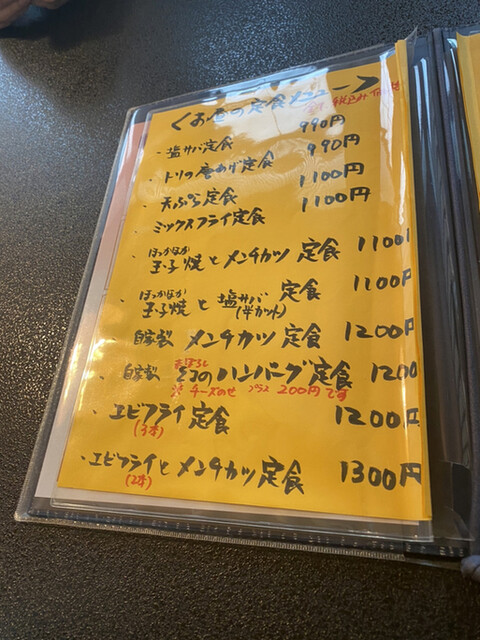 <お昼の定食メニュー>
全て税込み価格
・塩サバ定食 990円
・トリの唐あげ定食 990円
・天ぷら定食 1100円
・ミックスフライ定食 1100円
ほっかほか
・玉子焼とメンチカツ 定食 1100円
ほっかほか
・玉子焼と塩サバ 定食 1100円
(半カット)
・自家製 メンチカツ 定食 1200円
まぼろし
・自家製 幻のハンバーグ定食 1200
※チーズのせ プラス 200円です
・エビフライ定食 1200円
(3本)
・エビフライとメンチカツ定食 1300円
(2本)